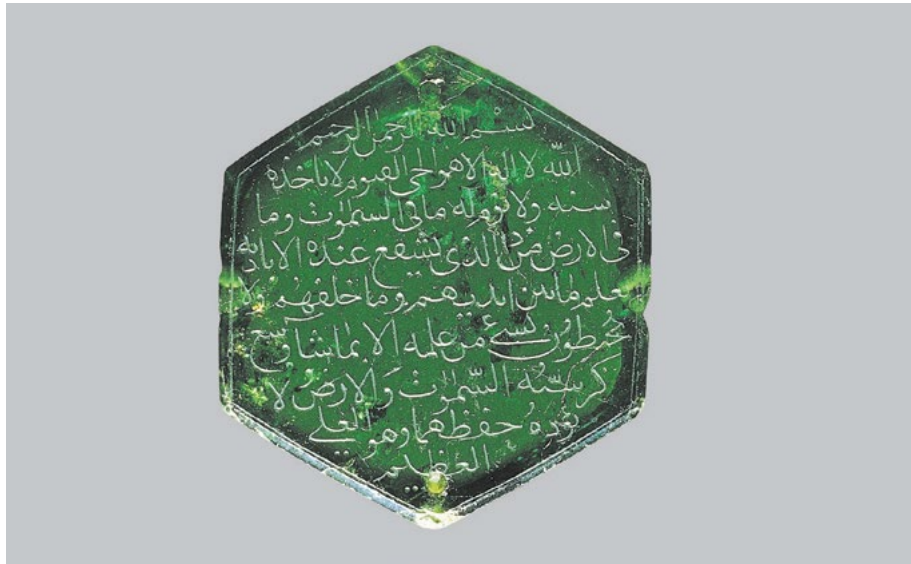 بسم الله الرحمن الرحيم
الله لا اله الا هو الحى القيوم لا تاخذه
سنه ولا نوم له ما فى السمٰوٰت وما
فى الارض من ذا الذى يشفع عنده الا باذنه
يعلم ما بين ايديهم وما خلفهم ولا
يحيطون بشىء من علمه الا بما شا وسع
كرسيه السمٰوٰت والارض ولا
يؤده حفظهما وهو العلى
العظيم